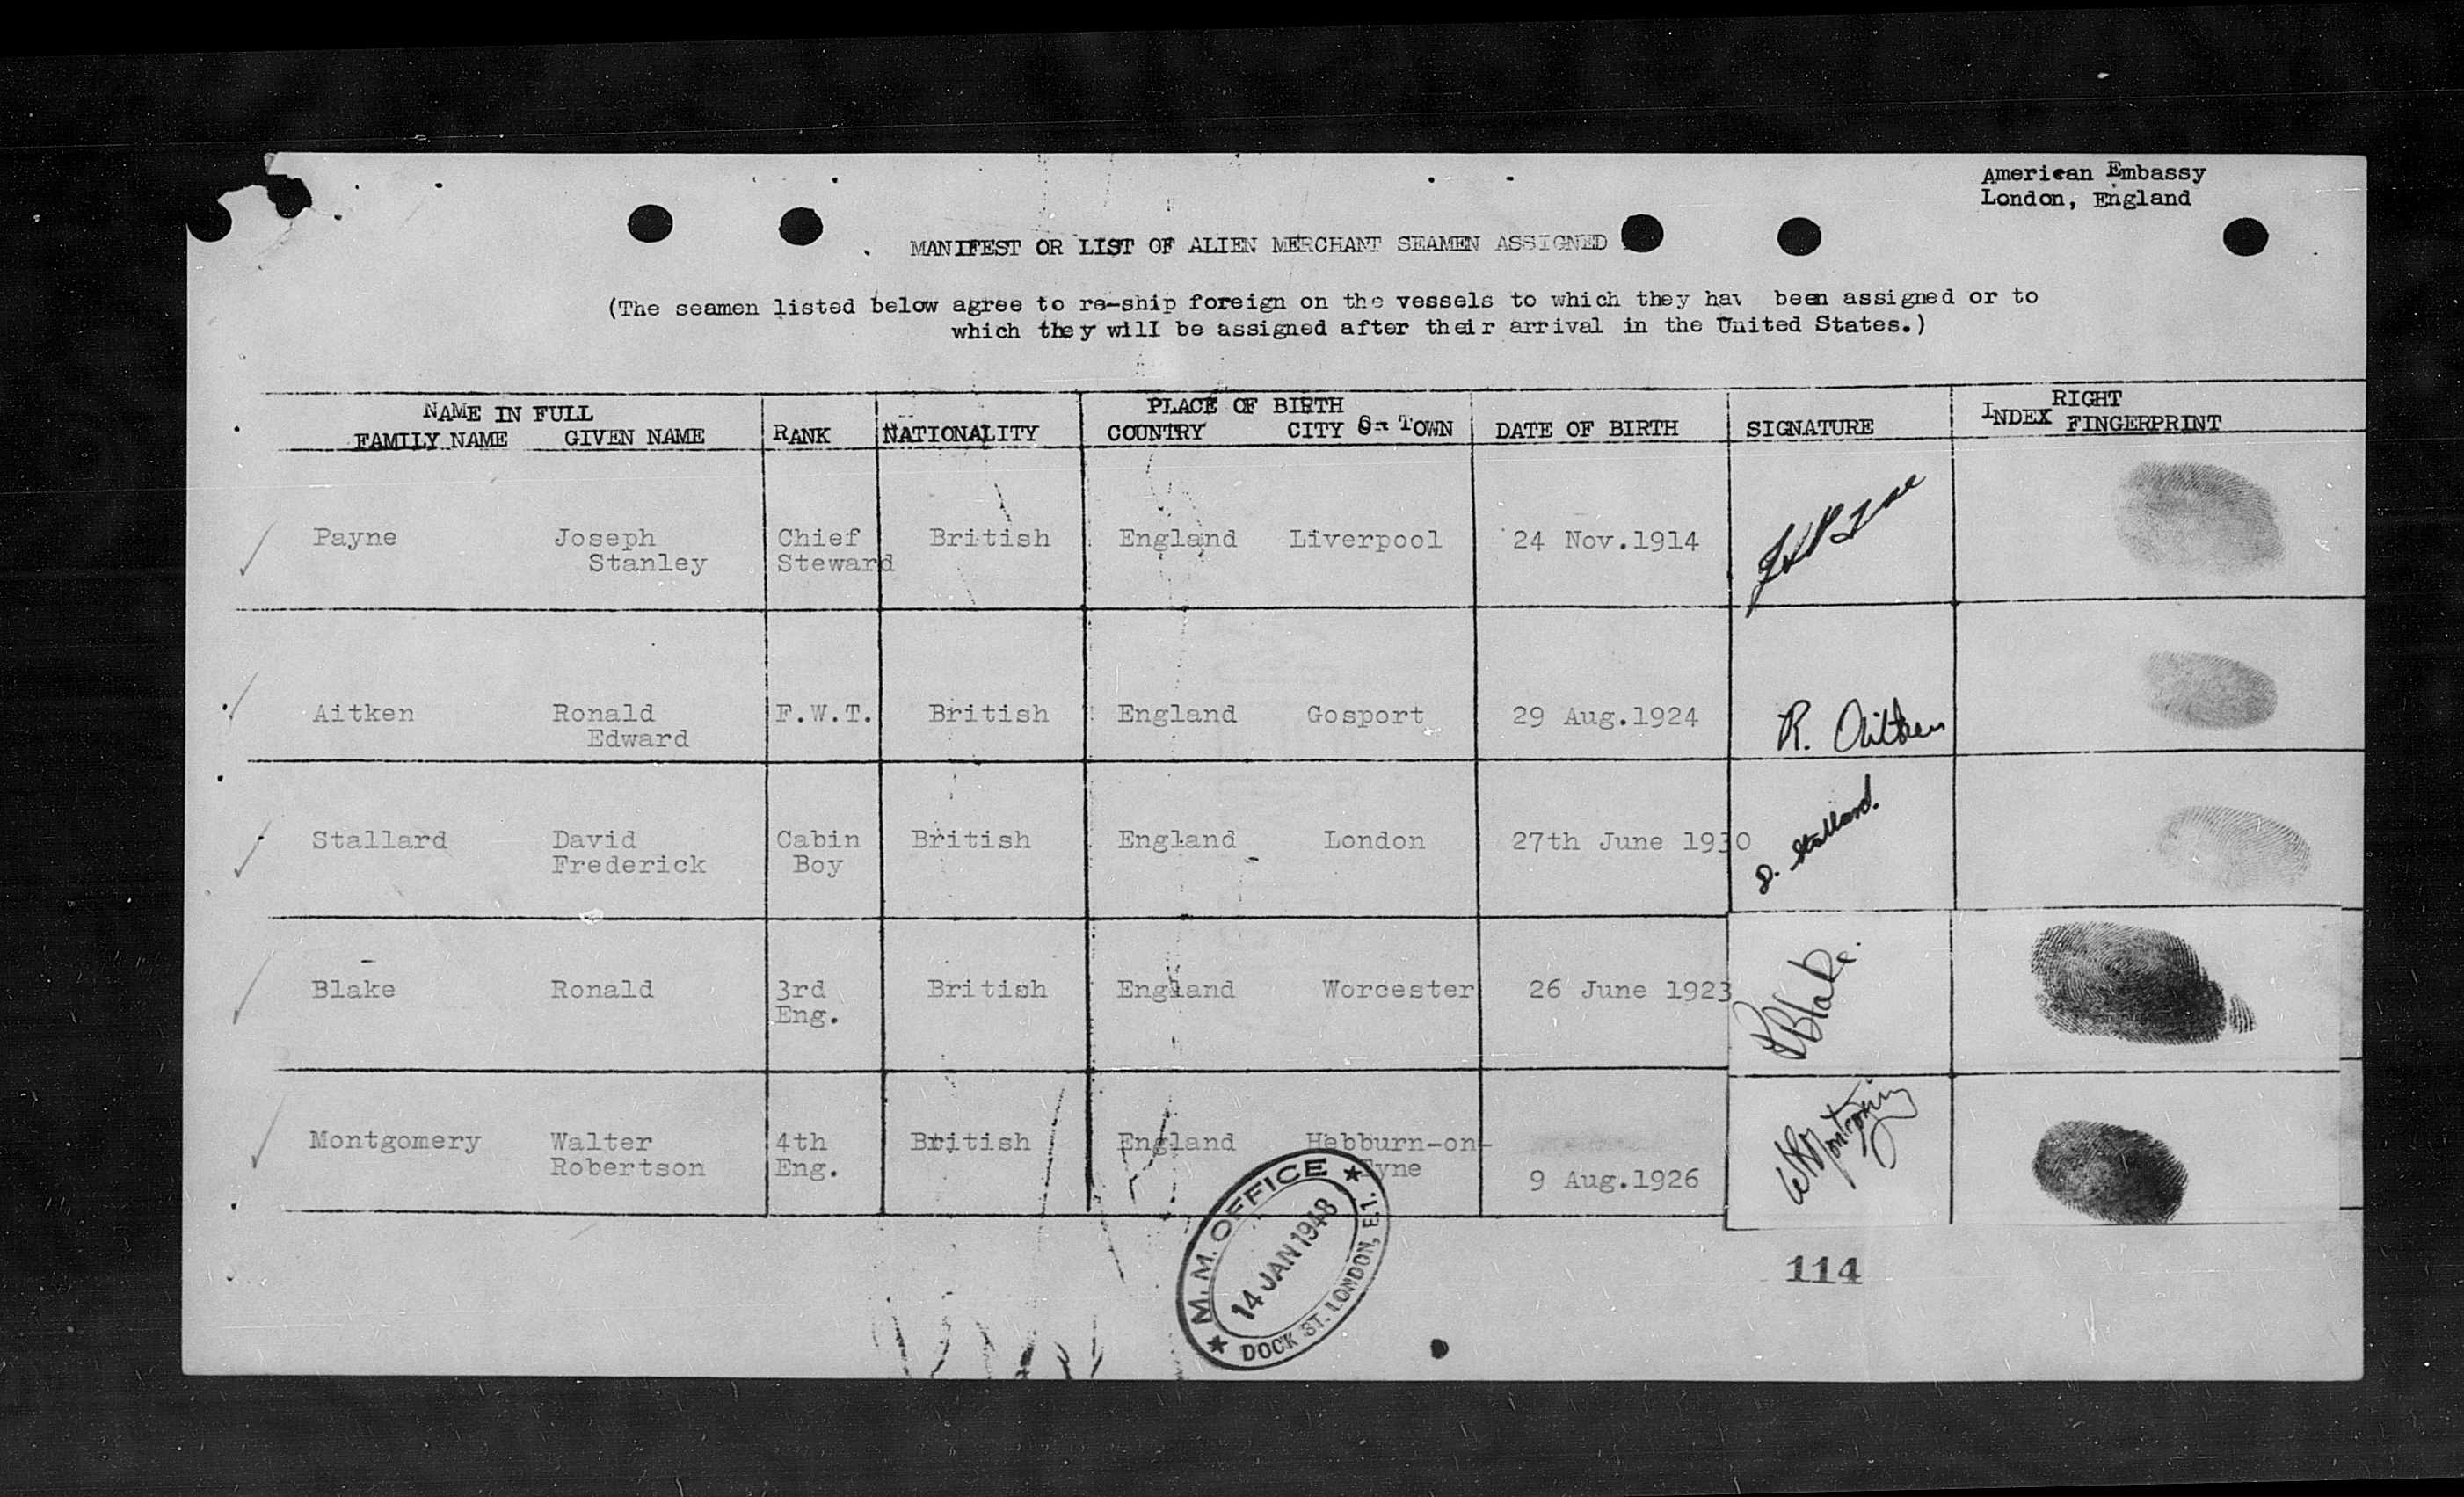 American Embassy
London, England
MANIFEST OR LIST OF ALIEN MERCHANT SEAMEN ASSIGNED
(The seamen listed below agree to re-ship foreign on the vessels to which they hav been assigned or to
which they will be assigned after their arrival in the United States.)
NAME IN FULL PLACE OF BIRTH RIGHT
FAMILY NAME GIVEN NAME RANK NATIONALITY COUNTRY CITY Or TOWN DATE OF BIRTH SIGNATURE INDEX FINGERPRINT
Payne Joseph Chief British England Liverpool 24 Nov.1914
Stanley Steward
Aitken Ronald F.W.T. British England Gosport 29 Aug.1924 R. Aitken
Edward
Stallard David Cabin British England London 27th June 1930 D. Stallard.
Frederick Boy
Blake Ronald 3rd British England Worcester 26 June 1923 R Blake.
Eng.
Montgomery Walter 4th British England Hebburn-on- WRMontgomery
Robertson Eng. Tyne 9 Aug.1926
M. M. OFFICE
14 JAN 1948
DOCK ST. LONDON, E.1.
114